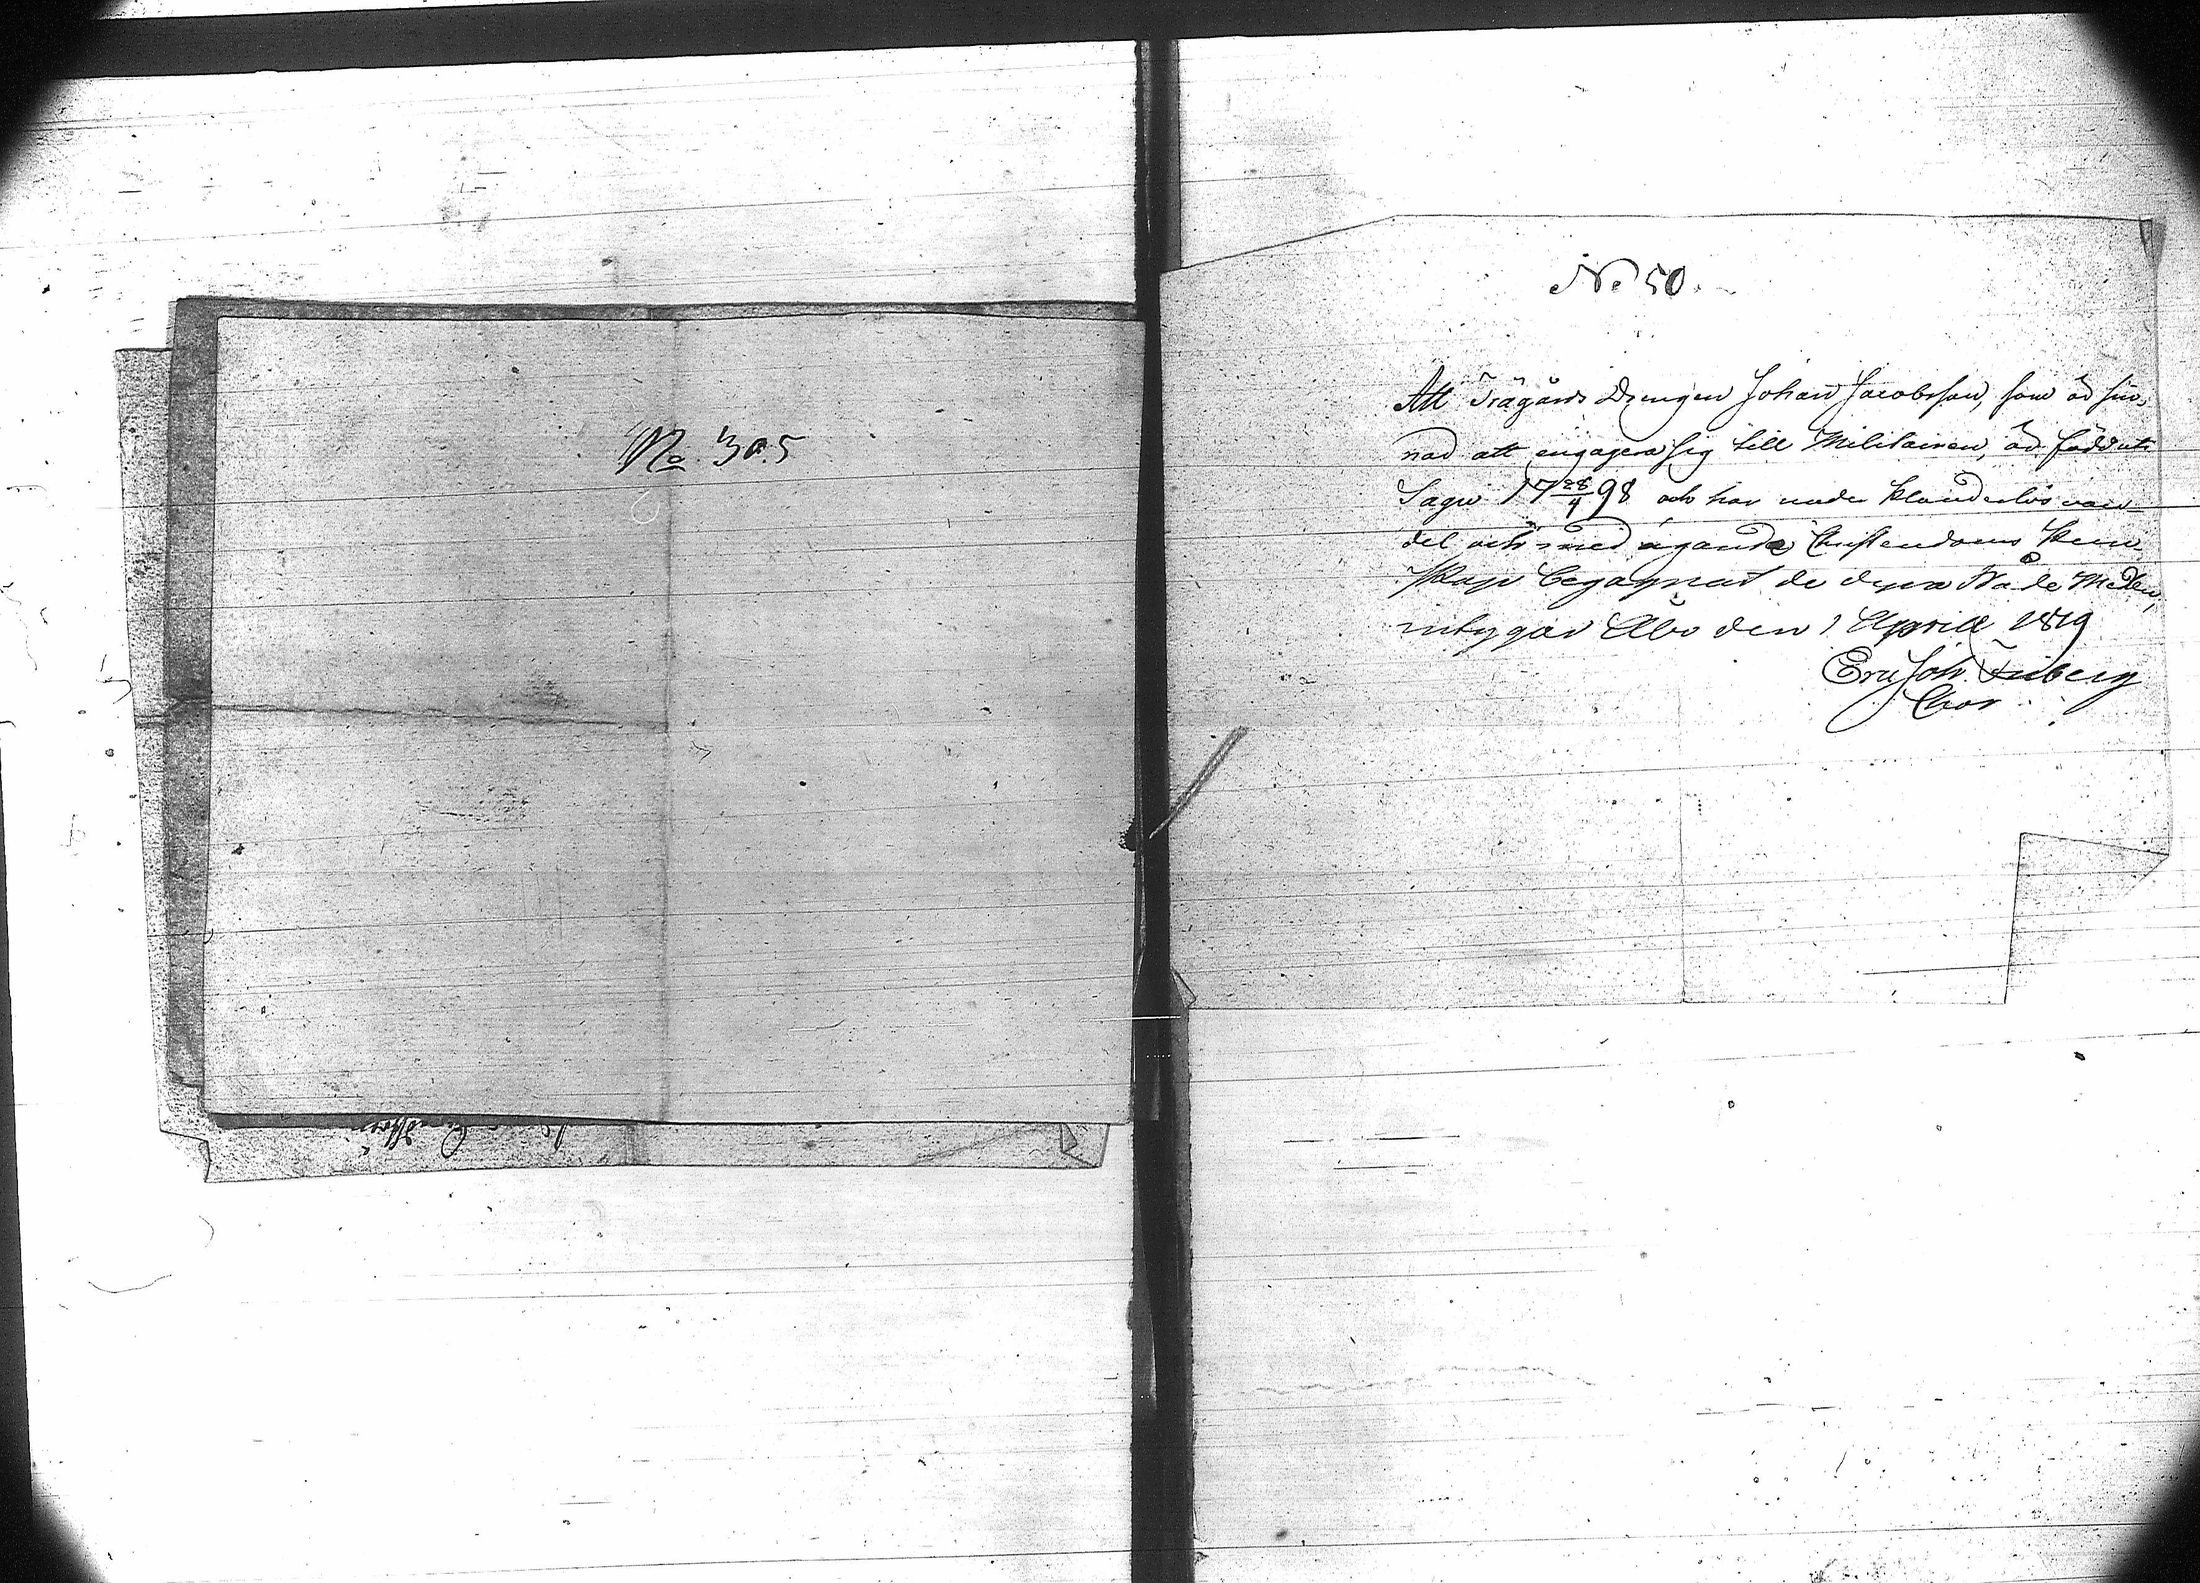 No. 305
No 50.
Att Trägårds Drengen Johan Jacobsson, som är sin-
nad att engagera sig till Militairen, är född uti
Sagu 17 28/4 98 och har under klanderlös van-
del och med ägande Christendoms kun-
skap begagnat de dyra Nåde Medlen,
intygar Åbo den 1 Aprill 1819
Eric Joh. Friberg